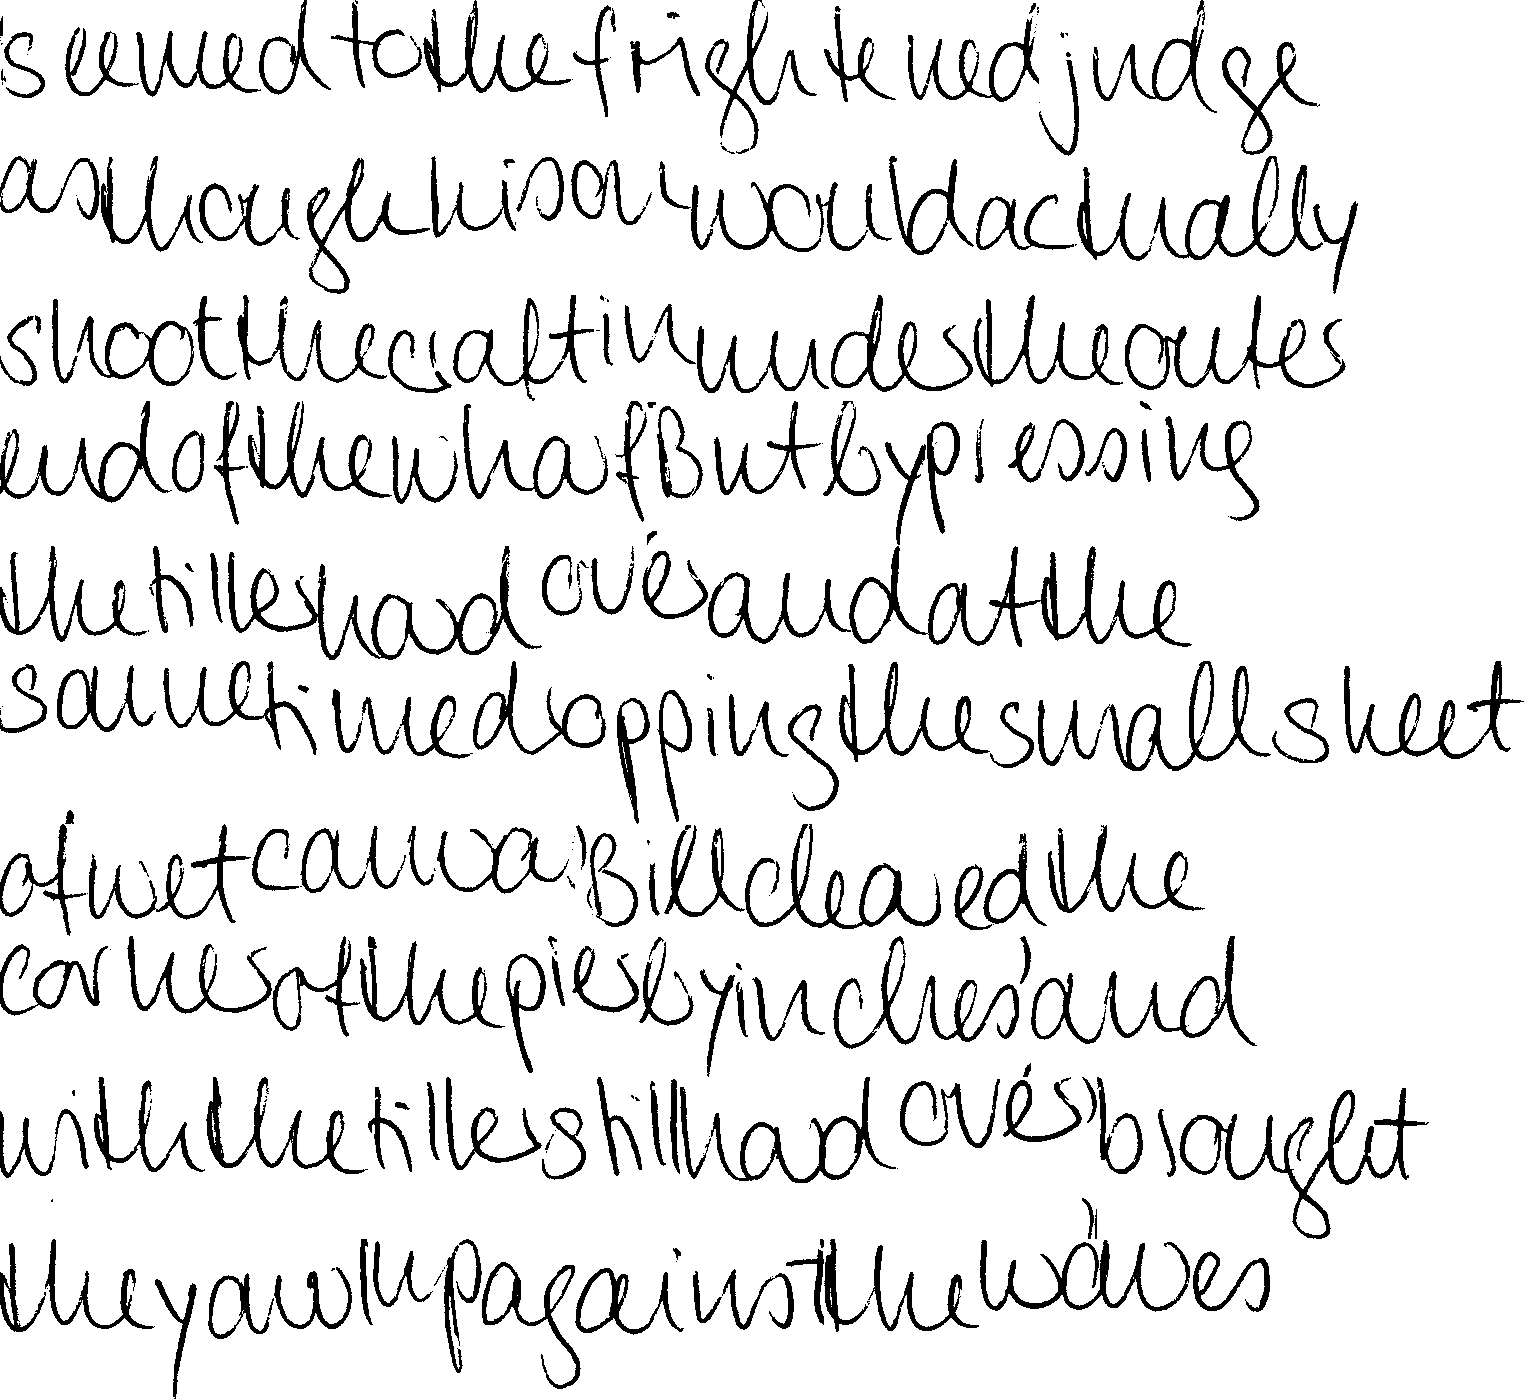 seemed to the frightened judge
as though would actually
shoot the craft in under the outer
end of the wharf But by pressing
the tiller hard over and at the
same time dropping the small sheet
of wet canvas Bill cleared the
corner of the pier by inches, and
with the tiller still hard over, brought
the yawl up against the waves